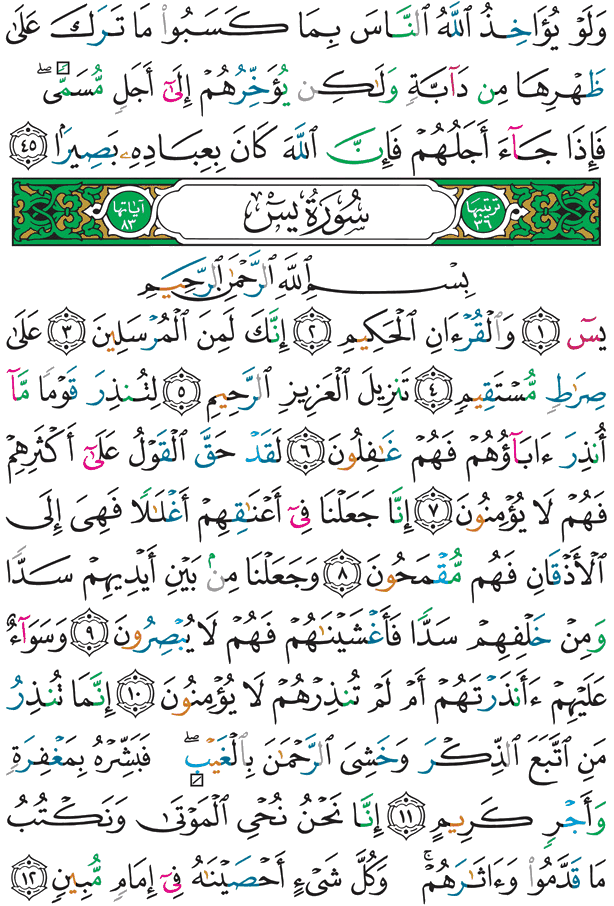 وَلَوْ يُؤَاخِذُ ٱللَّهُ ٱلنَّاسَ بِمَا كَسَبُوا۟ مَا تَرَكَ عَلَىٰ
ظَهْرِهَا مِن دَآبَّةٍ وَلَـٰكِن يُؤَخِّرُهُمْ إِلَىٰٓ أَجَلٍ مُّسَمًّى ۖ
فَإِذَا جَآءَ أَجَلُهُمْ فَإِنَّ ٱللَّهَ كَانَ بِعِبَادِهِۦ بَصِيرًۢا ٤٥
ترتيبها ٣٦ سُورَةُ يسٓ آياتها ٨٣
بِسْمِ ٱللَّهِ ٱلرَّحْمَـٰنِ ٱلرَّحِيمِ
يسٓ ١ وَٱلْقُرْءَانِ ٱلْحَكِيمِ ٢ إِنَّكَ لَمِنَ ٱلْمُرْسَلِينَ ٣ عَلَىٰ
صِرَٰطٍ مُّسْتَقِيمٍ ٤ تَنزِيلَ ٱلْعَزِيزِ ٱلرَّحِيمِ ٥ لِتُنذِرَ قَوْمًا مَّآ
أُنذِرَ ءَابَآؤُهُمْ فَهُمْ غَـٰفِلُونَ ٦ لَقَدْ حَقَّ ٱلْقَوْلُ عَلَىٰٓ أَكْثَرِهِمْ
فَهُمْ لَا يُؤْمِنُونَ ٧ إِنَّا جَعَلْنَا فِىٓ أَعْنَـٰقِهِمْ أَغْلَـٰلًا فَهِىَ إِلَى
ٱلْأَذْقَانِ فَهُم مُّقْمَحُونَ ٨ وَجَعَلْنَا مِنۢ بَيْنِ أَيْدِيهِمْ سَدًّا
وَمِنْ خَلْفِهِمْ سَدًّا فَأَغْشَيْنَـٰهُمْ فَهُمْ لَا يُبْصِرُونَ ٩ وَسَوَآءٌ
عَلَيْهِمْ ءَأَنذَرْتَهُمْ أَمْ لَمْ تُنذِرْهُمْ لَا يُؤْمِنُونَ ١٠ إِنَّمَا تُنذِرُ
مَنِ ٱتَّبَعَ ٱلذِّكْرَ وَخَشِىَ ٱلرَّحْمَـٰنَ بِٱلْغَيْبِ ۖ فَبَشِّرْهُ بِمَغْفِرَةٍ
وَأَجْرٍ كَرِيمٍ ١١ إِنَّا نَحْنُ نُحْىِ ٱلْمَوْتَىٰ وَنَكْتُبُ
مَا قَدَّمُوا۟ وَءَاثَـٰرَهُمْ ۚ وَكُلَّ شَىْءٍ أَحْصَيْنَـٰهُ فِىٓ إِمَامٍ مُّبِينٍ ١٢